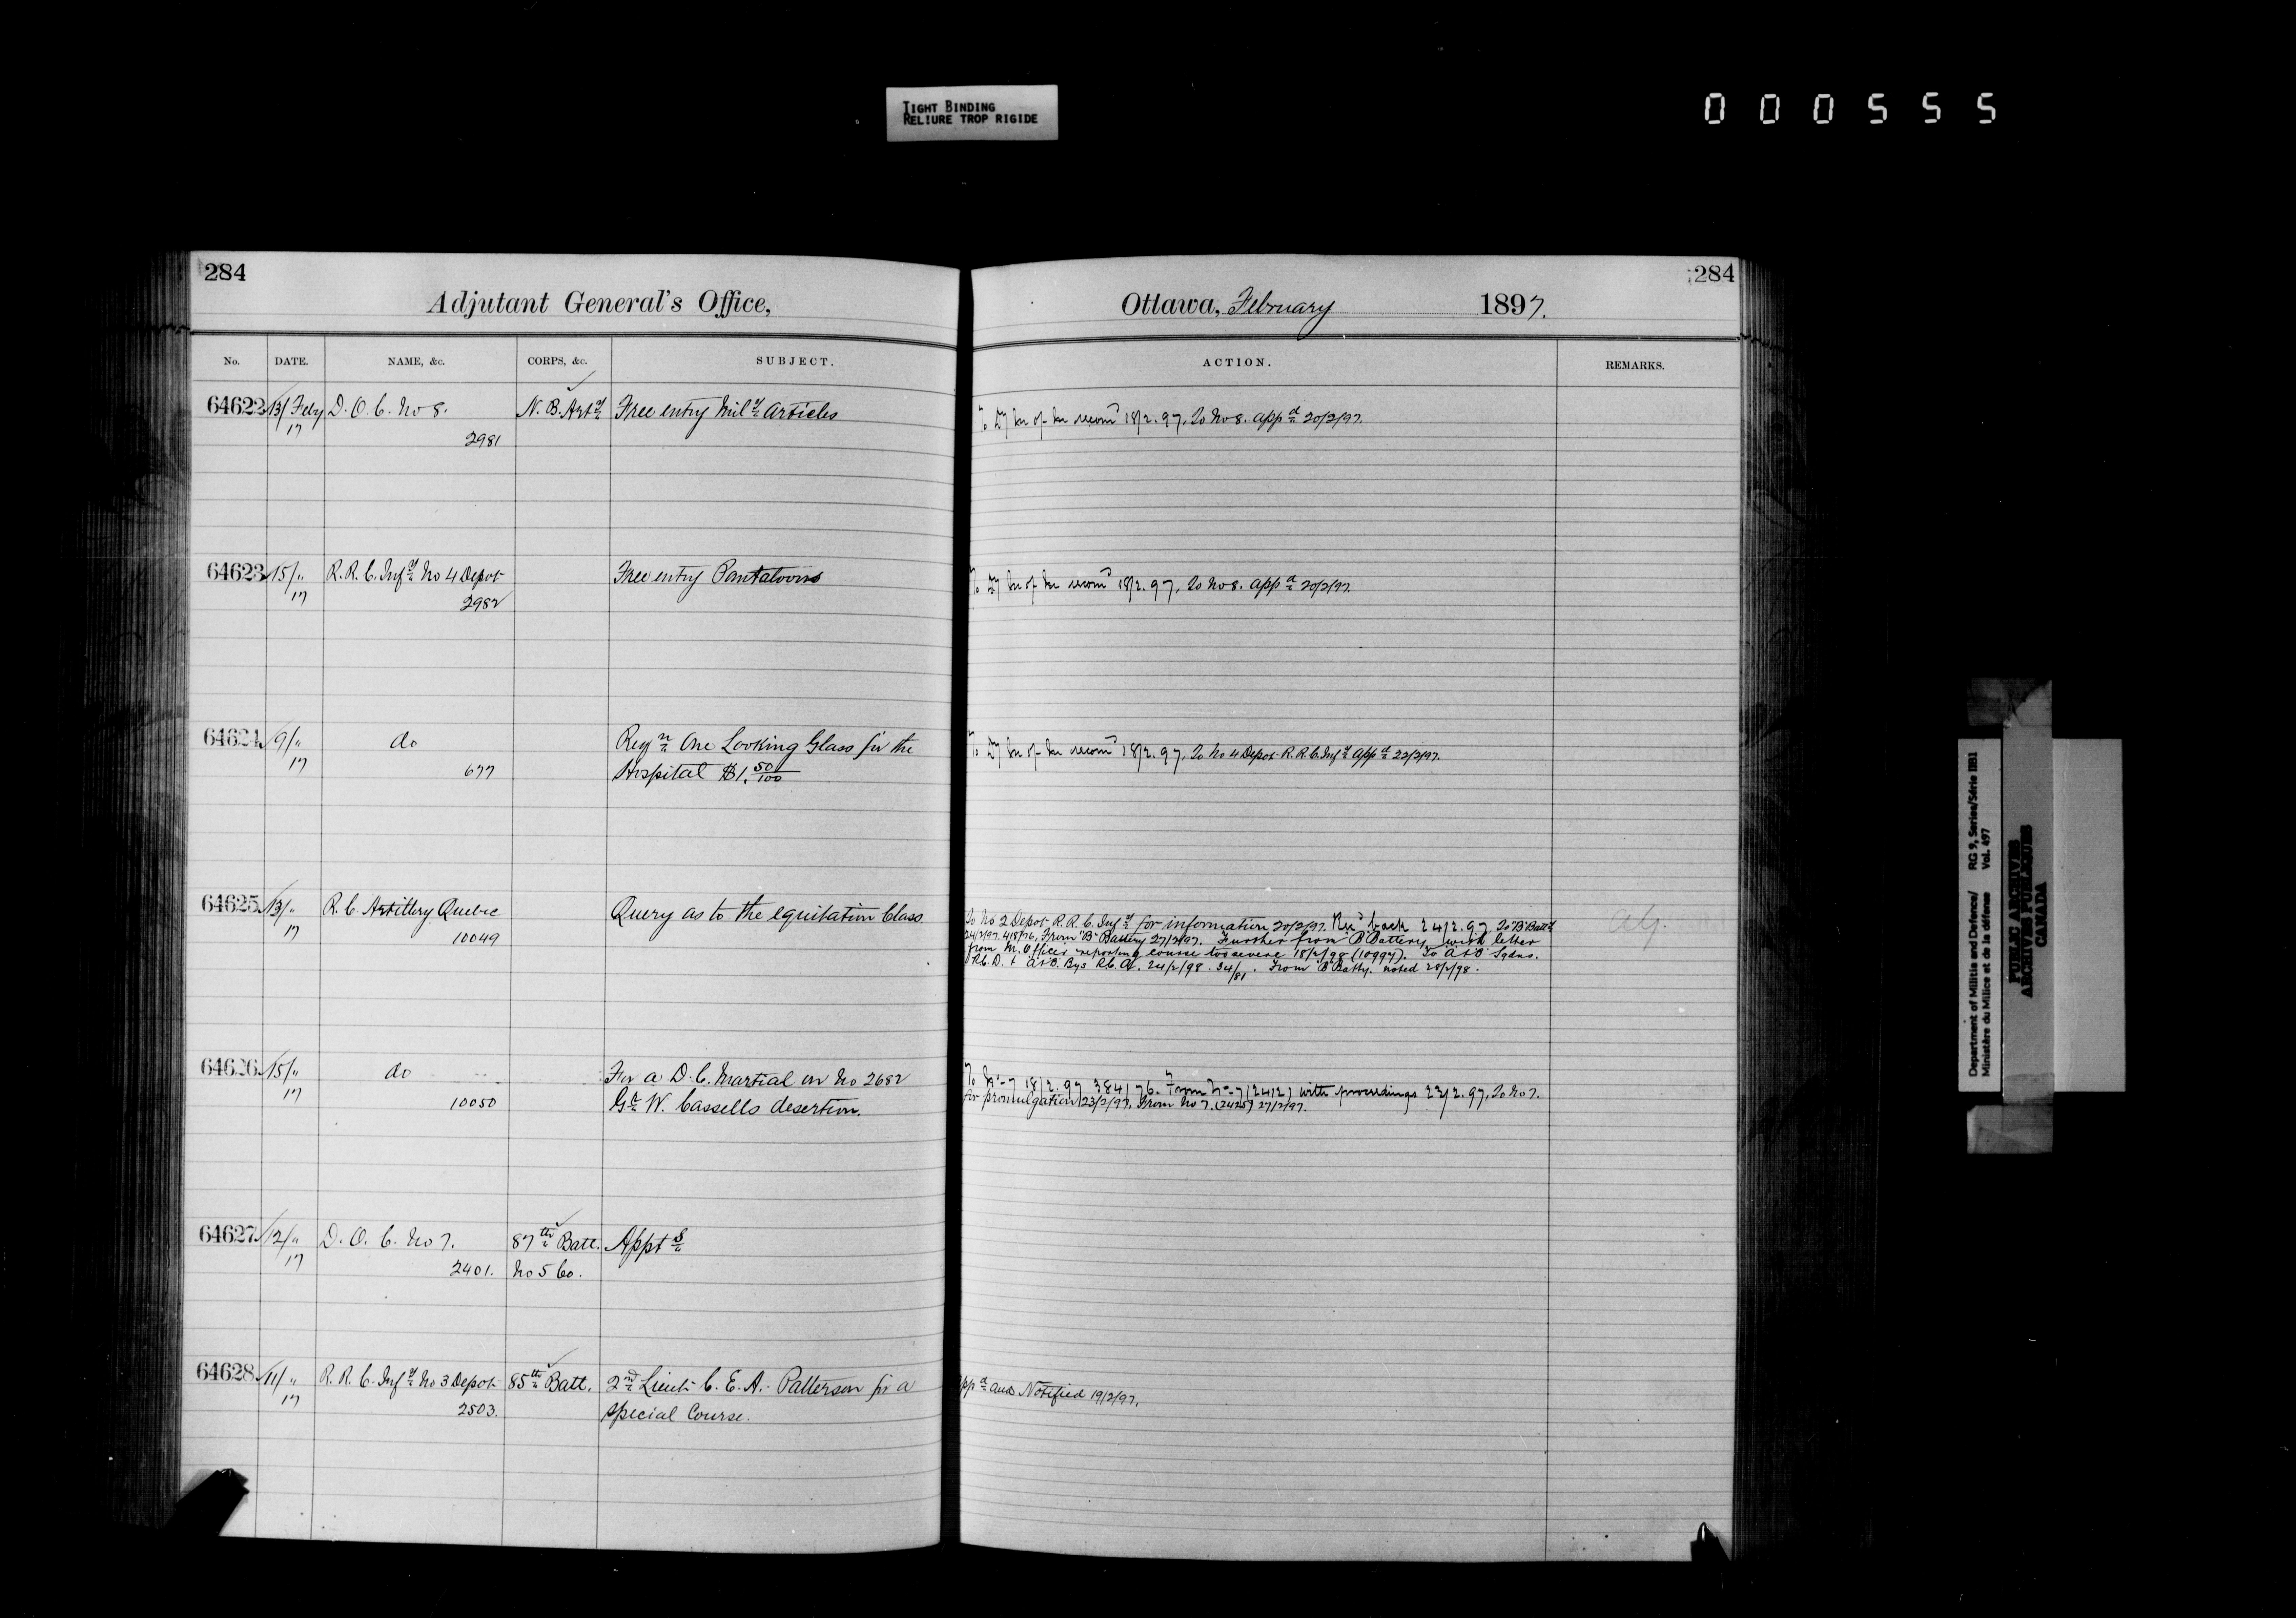 TIGHT BINDING
RELIURE TROP RIGIDE
000555
284
Adjutant General's Office,
No. DATE. NAME, &c. CORPS, &c. SUBJECT.
64622 13/Feby D. O. C. No 8. N. B. Arty Free entry Mily Articles
17 2981
64623 15/" R. R. C. Infy No 4 Depot Free entry Pantaloons
17 2982
64624 9/" do Reqn One Looking Glass for the
17 677 Hospital $1.50/100
64625 13/" R. C. Artillery Quebec Query as to the equitation Class
17 10049
64626 15/" do For a D. C. Martial on No 2682
17 10050 Gr W. Cassells desertion.
64627 12/" D. O. C. No 7. 87th Batt. Appts
17 2401. No 5 Co.
64628 11/" R. R. C. Infy No 3 Depot 85th Batt. 2nd Lieut C. E. A. Patterson for a
17 2503. special Course.
284
Ottawa, February 1897.
ACTION. REMARKS.
recomd 18/2.97. To No 8. appd 20/2/97.
recomd 18/2.97. To No 8. appd 20/2/97.
recomd 18/2.97. To No 4 Depot R. R. C. Infy appd 22/2/97.
To No 2 Depot R. R. C. Infy for information 20/2/97. back 24/2.97 To "B" Batty
24/2/97. 418/76. From "B" Battery 27/2/97. Further from B Battery with letter
from M. Officer reporting course too severe 18/2/98 (10997). To A & B Sqdns.
R.C.D. & A & B. Bys R.C.A. 24/2/98. 34/81. From "B" Batty. noted 28/2/98.
To No 7 18/2.97 384/76. From No 7 (2412) with proceedings 23/2.97. To No 7.
for promulgation 23/2/97. From No 7. (2425) 27/2/97.
appd and Notified 19/2/97.
Department of Militia and Defence/ RG 9, Series/Série IIB1
Ministère du Milice et de la défense Vol. 497
PUBLIC ARCHIVES
ARCHIVES PUBLIQUES
CANADA